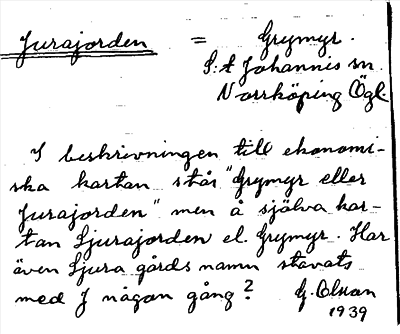 Jurajorden = Grymyr.
S:t Johannis sn.
Norrköping Ögl.
I beskrivningen till ekonomi-
ska kartan står "Grymyr eller
Jurajorden" men å själva kar-
tan Ljurajorden el. Grymyr. Har
även Ljura gårds namn stavats
med J någon gång? G. Olson
1939